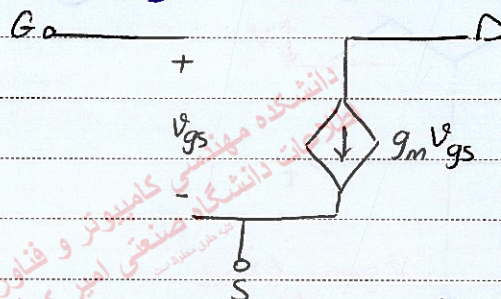 G D
+
v_gs g_m v_gs
-
S
دانشکده مهندسی کامپیوتر و فناوری
اطلاعات دانشگاه صنعتی امیر
کلیه حقوق محفوظ است